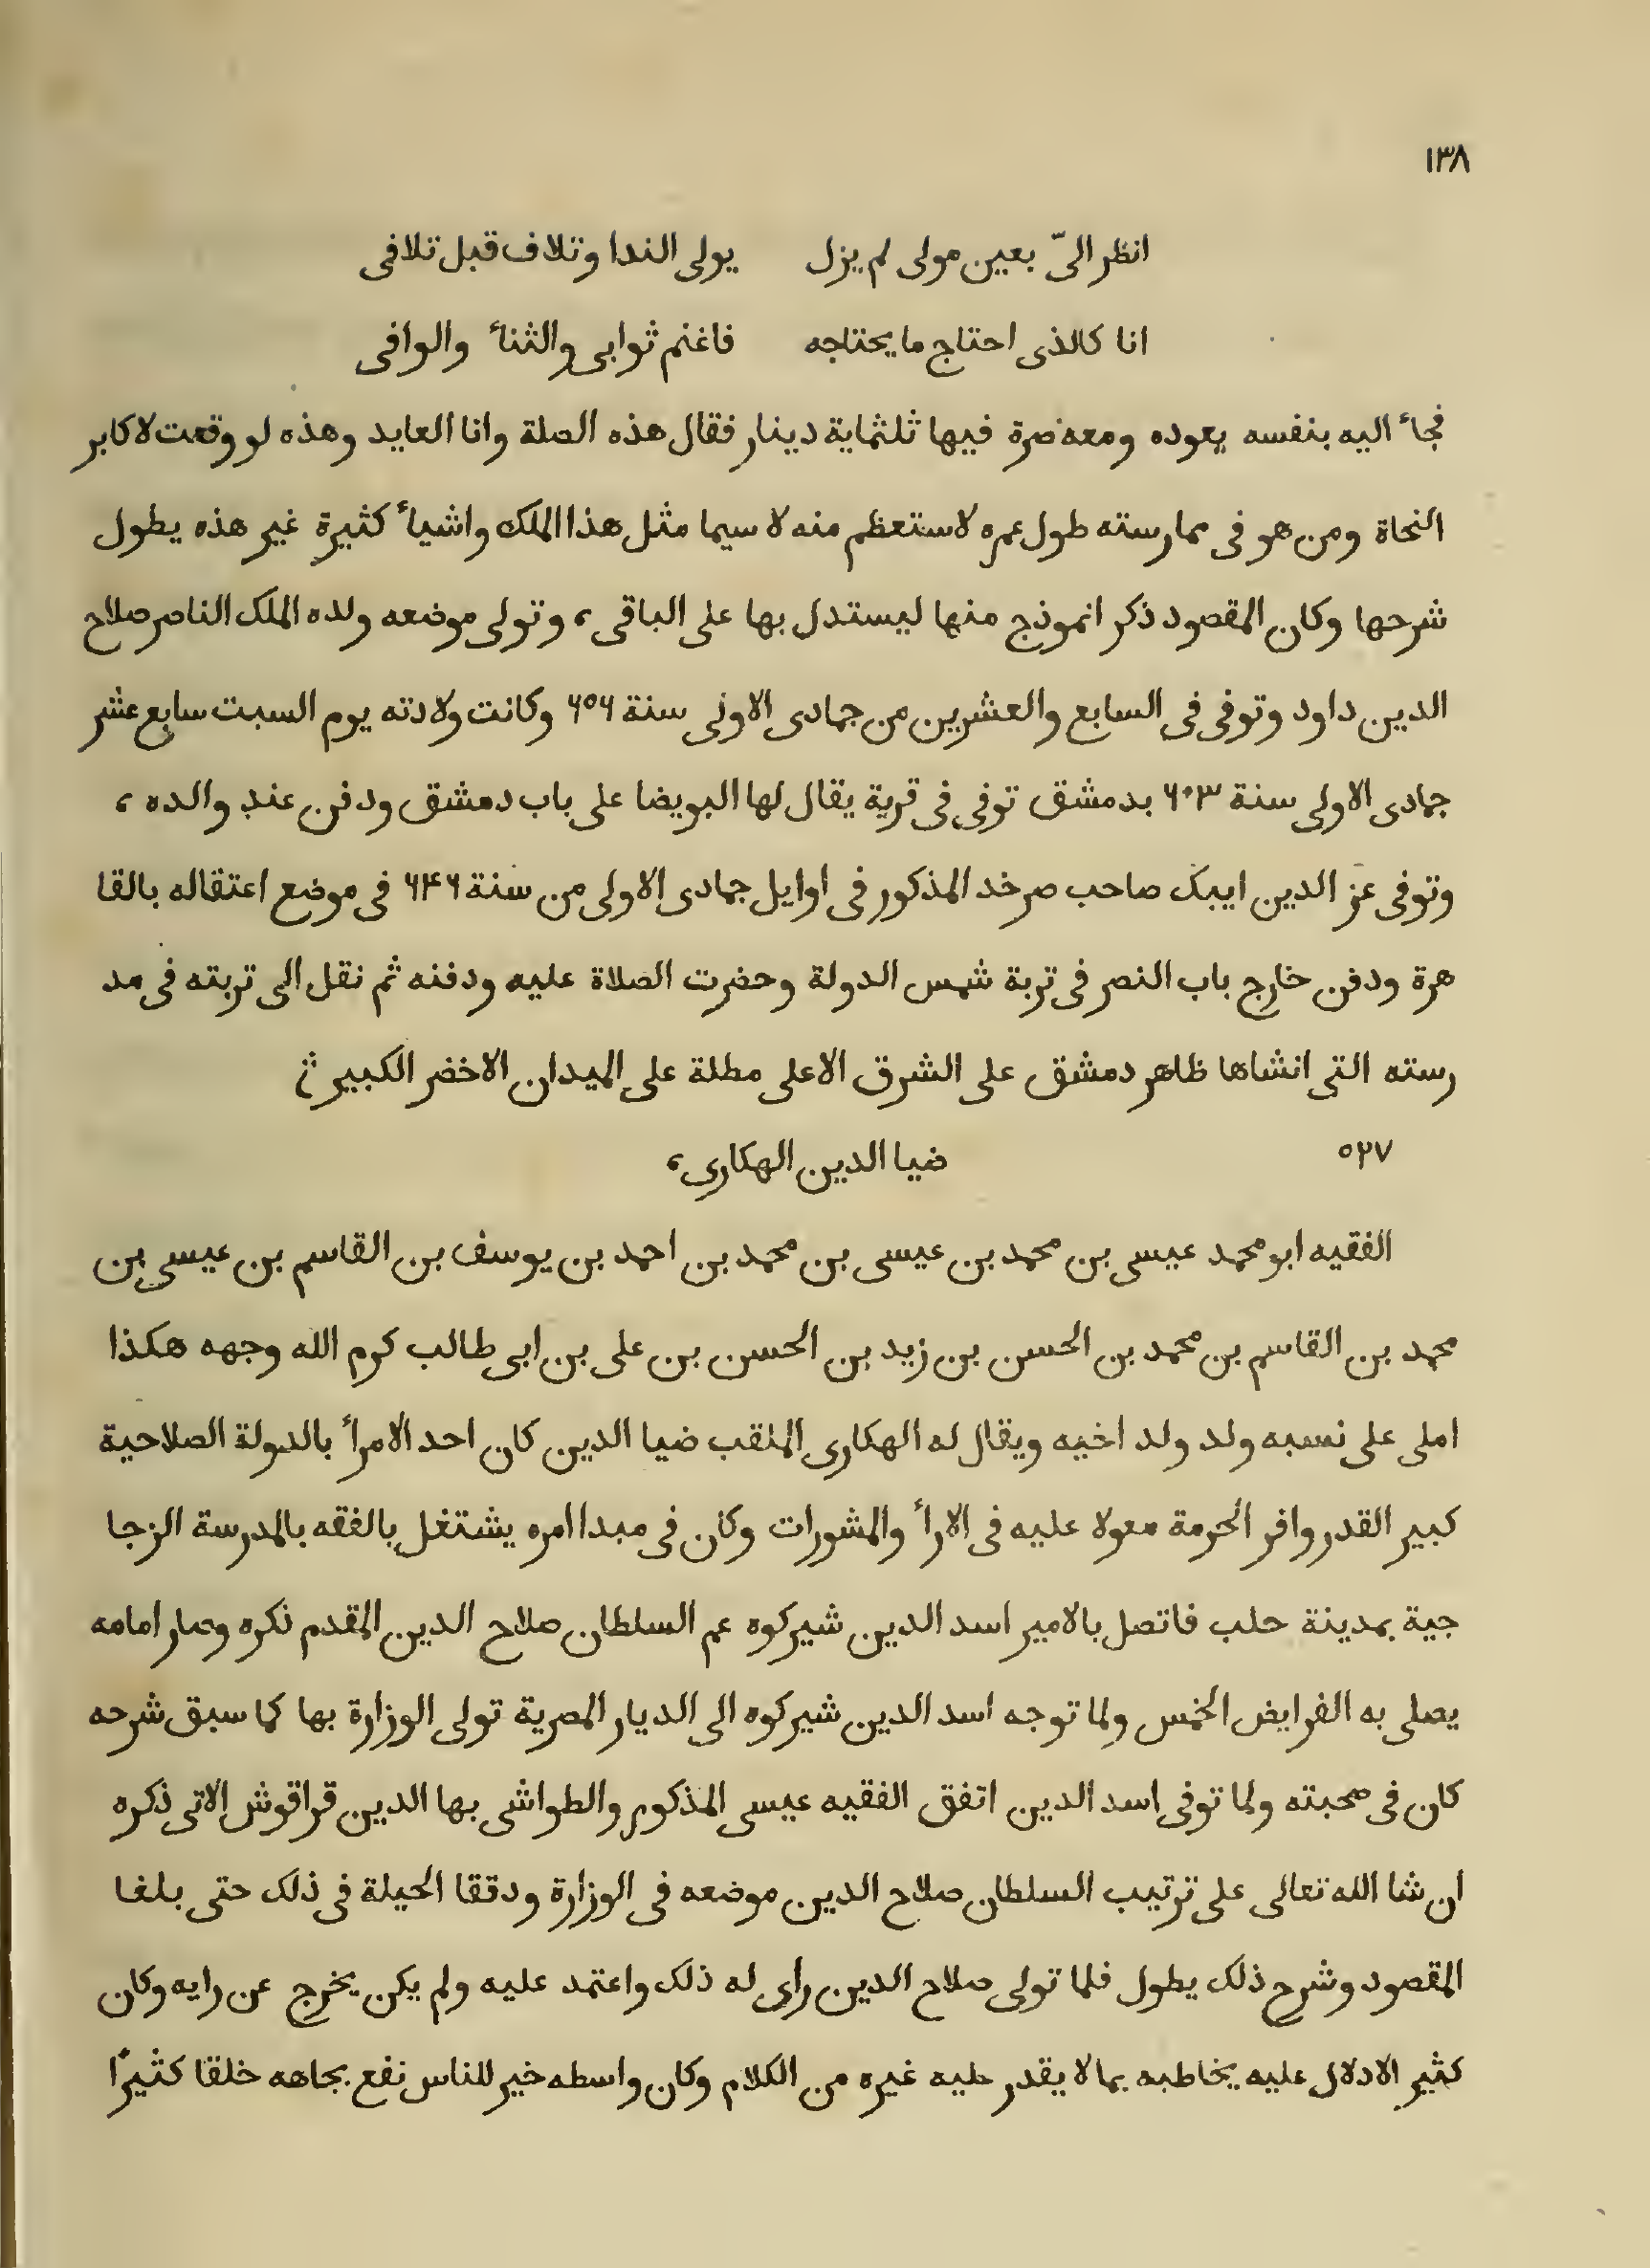 ١٣٨
انظر الىّ بعين مولى لم يزل يولى الندا وتلاف قبل تلافى
انا كالذى احتاج ما يحتاجه فاغنم ثوابى والثناء والوافى
فجاء اليه بنفسه يعوده ومعه صرة فيها ثلثماية دينار فقال هذه الصلة وانا العايد وهذه لو وقعت لاكابر
النحاة ومن هو فى ممارسته طول عمره لاستعظم منه لا سيما مثل هذا الملك واشياء كثيرة غير هذه يطول
شرحها وكان المقصود ذكر انموذج منها ليستدل بها على الباقى، وتولى موضعه ولده الملك الناصر صلاح
الدين داود وتوفى فى السابع والعشرين من جمادى الاولى سنة ٦٥٦ وكانت ولادته يوم السبت سابع عشر
جمادى الاولى سنة ٦٠٣ بدمشق توفى فى قرية يقال لها البويضا على باب دمشق ودفن عند والده،
وتوفى عز الدين ايبك صاحب صرخد المذكور فى اوايل جمادى الاولى من سنة ٦٤٦ فى موضع اعتقاله بالقا
هرة ودفن خارج باب النصر فى تربة شمس الدولة وحضرت الصلاة عليه ودفنه ثم نقل الى تربته فى مد
رسته التى انشاها ظاهر دمشق على الشرق الاعلى مطلة على الميدان الاخضر الكبير
٥٢٧ ضيا الدين الهكارى،
الفقيه ابو محمد عيسى بن محمد بن عيسى بن محمد بن احمد بن يوسف بن القاسم بن عيسى بن
محمد بن القاسم بن محمد بن الحسن بن زيد بن الحسن بن على بن ابى طالب كرم الله وجهه هكذا
املى على نسبه ولد ولد اخيه ويقال له الهكارى الملقب ضيا الدين كان احد الامرأ بالدولة الصلاحية
كبير القدر وافر الحرمة معولا عليه فى الارأ والمشورات وكان فى مبدا امره يشتغل بالفقه بالمدرسة الزجا
جية بمدينة حلب فاتصل بالامير اسد الدين شيركوه عم السلطان صلاح الدين المقدم ذكره وصار امامه
يصلى به الفرايض الخمس ولما توجه اسد الدين شيركوه الى الديار المصرية تولى الوزارة بها كما سبق شرحه
كان فى صحبته ولما توفى اسد الدين اتفق الفقيه عيسى المذكور والطواشى بها الدين قراقوش الاتى ذكره
ان شا الله تعالى على ترتيب السلطان صلاح الدين موضعه فى الوزارة ودققا الحيلة فى ذلك حتى بلغا
المقصود وشرح ذلك يطول فلما تولى صلاح الدين رأى له ذلك واعتمد عليه ولم يكن يخرج عن رايه وكان
كثير الادلال عليه يخاطبه بما لا يقدر عليه غيره من الكلام وكان واسطه خير للناس نفع بجاهه خلقا كثيرًا